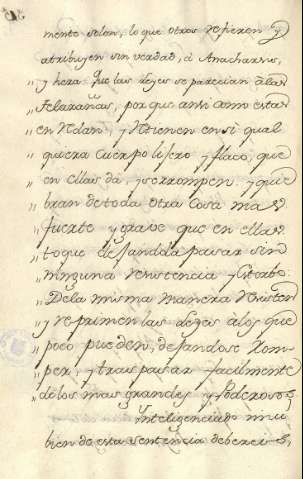 mente solon, lo que otros refieren y
atribuyen sin verdad, á Anacharsis,
y hera que las leyes se parecian á las
telarañas, por que ansi como estas
enredan, y retienen en si qual
quiera cuerpo lijero y flaco, que
en ellas da, y se rrompen, y que
bran de toda otra cosa mas
fuerte y grave que en ellas
toque dejandola pasar sin
ninguna resistencia y estorbo.
De la misma manera resisten
y reprimen las leyes a los que
poco pueden, dejandose rom-
per, y traspasar facilmente
de los mas grandes y Poderosos
inteligenciado mui
bien de esta sentencia debereis,